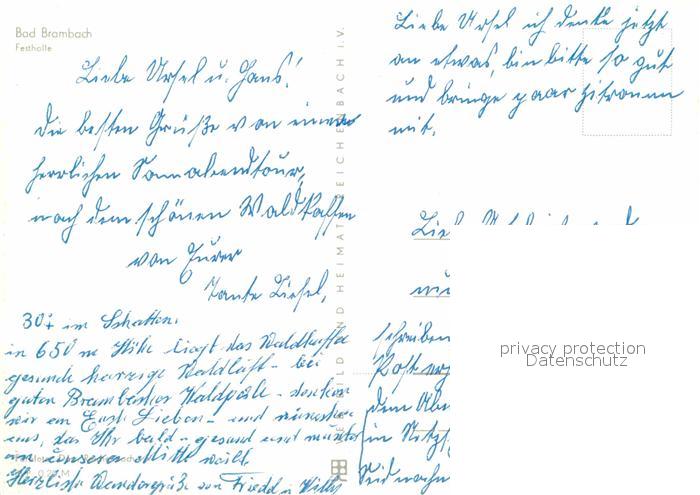 Bad Brambach
Festhalle
Liebe Ursel u. Hans!
Die besten Grüße von einer
herrlichen Sonnabendtour,
nach dem schönen Waldkaffee
von Eurer
Tante Liesel.
30+ im Schatten.
in 650 m Höhe liegt das Waldkaffee
gesunde harzige Waldluft - bei
guten Brambacher
wir an Euch Lieben - und wünschen
uns, das Ihr bald - gesund und munter
in unserer Mitte weilt.
Herzliche Wandergrüße von
BILD UND HEIMAT REICHENBACH I.V.
Liebe Ursel ich denke jetzt
an etwas, bin bitte so gut
und bringe paar Zitronen
mit.
schreiben
dem
in
privacy protection
Datenschutz